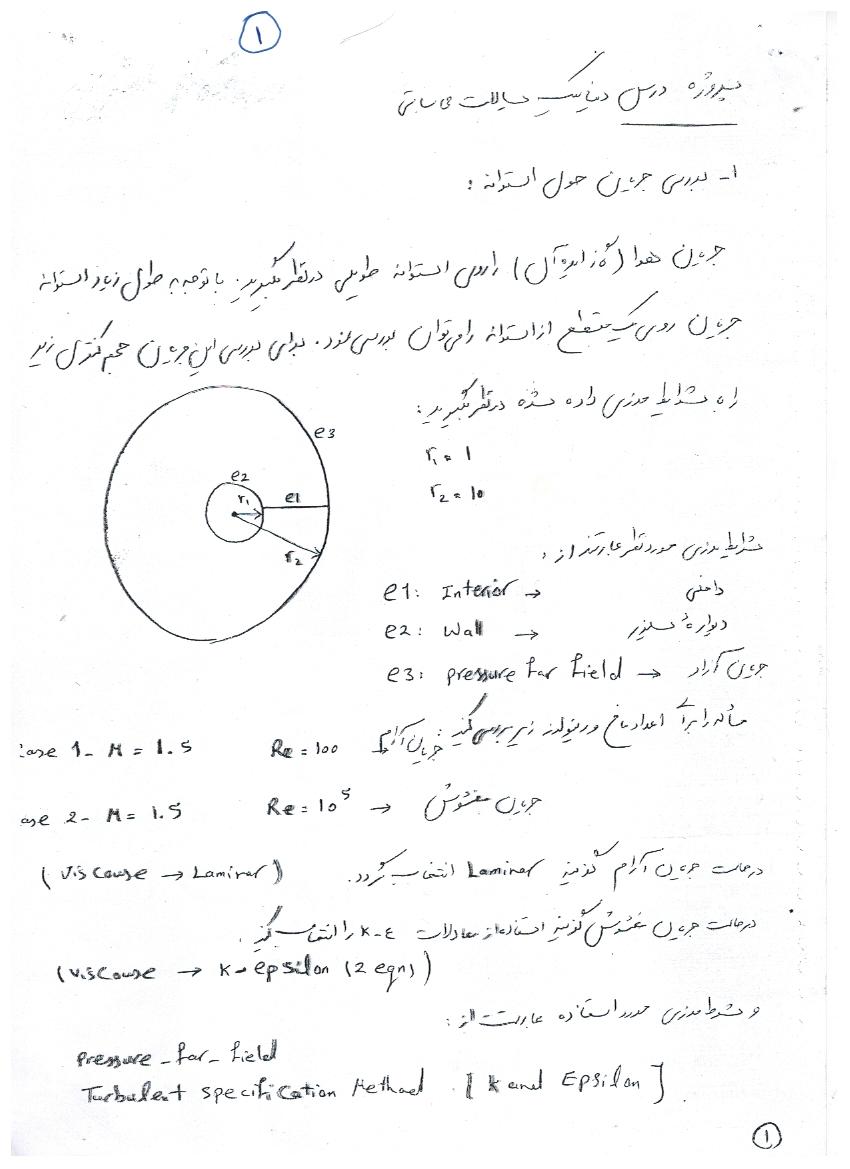 ۱
پروژه درس دینامیک سیالات محاسباتی
۱- بررسی جریان حول استوانه :
جریان هوا (گاز ایده‌آل) را روی استوانه طویلی در نظر بگیرید. با توجه به طول زیاد استوانه
جریان روی یک مقطع از استوانه را می‌توان بررسی نمود. برای بررسی این جریان حجم کنترل زیر
را به شرایط مرزی داده شده در نظر بگیرید :
r₁ = 1
r₂ = 10
e3
e2
r₁
e1
r₂
شرایط مرزی مورد نظر عبارتند از :
e1: Interior → داخلی
e2: Wall → دیواره سیلندر
e3: pressure far field → جریان آزاد
مسأله را برای اعداد ماخ و رینولدز زیر بررسی کنید :
ase 1- M = 1.5 Re = 100 → جریان آرام
ase 2- M = 1.5 Re = 10⁵ → جریان مغشوش
درحالت جریان آرام گزینه Laminar انتخاب گردد. (Viscouse → Laminar)
درحالت جریان مغشوش گزینه استفاده از معادلات k-ε را انتخاب کنید.
(Viscouse → k-epsilon (2 eqn))
و شرط مرزی مورد استفاده عبارتست از :
Pressure_far_field
Turbulent specification Method [k and Epsilon]
۱